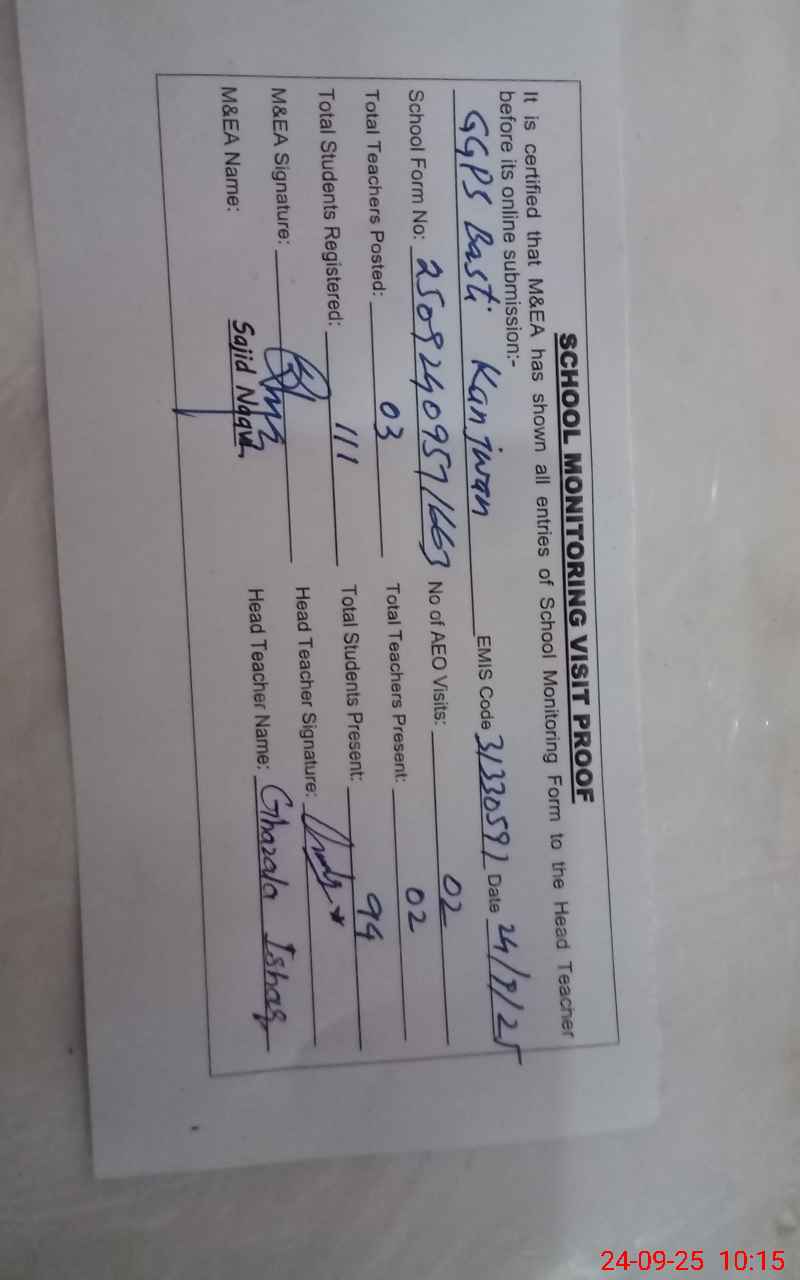 SCHOOL MONITORING VISIT PROOF
It is certified that M&EA has shown all entries of School Monitoring Form to the Head Teacher
before its online submission:-
GGPS Basti Kanjwan EMIS Code 31330592 Date 24/9/25
School Form No: 25092409571663 No of AEO Visits: 02
Total Teachers Posted: 03 Total Teachers Present: 02
Total Students Registered: 111 Total Students Present: 94
M&EA Signature: Head Teacher Signature:
M&EA Name: Sajid Naqvi Head Teacher Name: Ghazala Ishaq
24-09-25 10:15